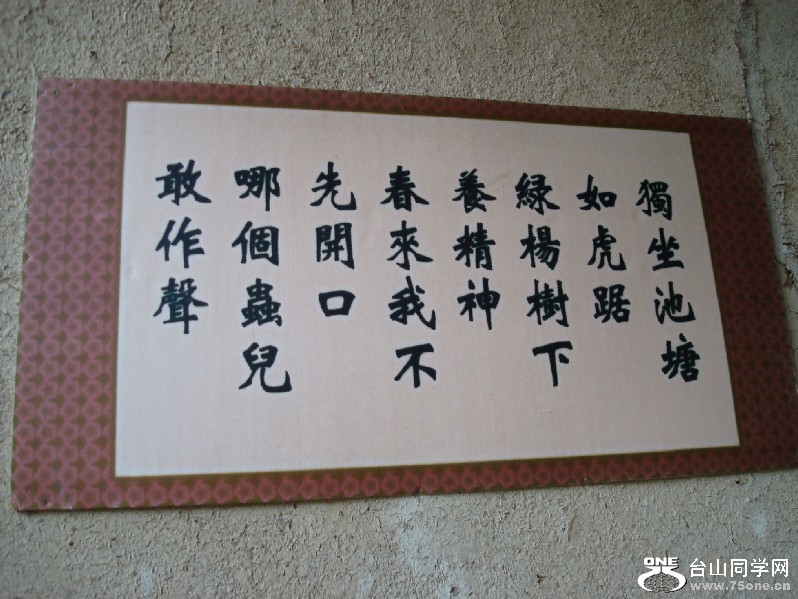 獨坐池塘
如虎踞
緑楊樹下
養精神
春來我不
先開口
哪個蟲兒
敢作聲
ONE 台山同学网
www.75one.cn